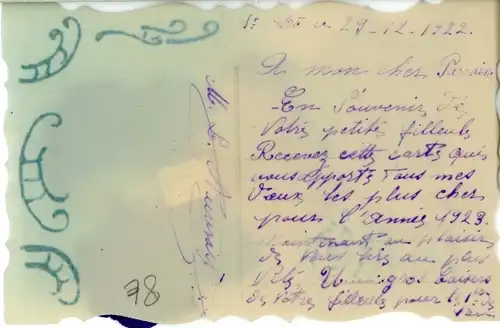 29-12-1922
A mon cher Parrain
En Souvenir De
Votre petite filleule
Recevez cette carte qui
vous apporte tous mes
Vœux les plus cher
pour l'Année 1923
maintenant au plaisir
de vous lire au plus
Vite, Un gros Baisers
de votre filleule pour le 1er de
M. L.
78